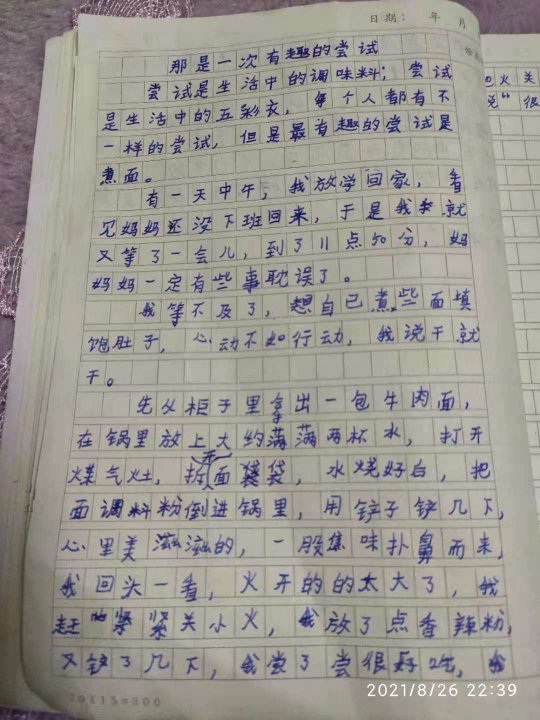 日期： 年 月
那是一次有趣的尝试
尝试是生活中的调味料；尝试
是生活中的五彩衣，每个人都有不
一样的尝试，但是最有趣的尝试是
煮面。
有一天中午，我放学回家，看
见妈妈还没下班回来，于是我就
又等了一会儿，到了11点50分，妈
妈妈一定有些事耽误了。
我等不及了，想自己煮些面填
饱肚子，心动不如行动，我说干就
干。
先从柜子里拿出一包牛肉面，
在锅里放上大约满满两杯水，打开
煤气灶，拆开面袋，水烧好后，把
面调料粉倒进锅里，用铲子铲几下，
心里美滋滋的，一股焦味扑鼻而来，
我回头一看，火开的的太大了，我
赶紧关小火，我放了点香辣粉，
又铲了几下，我尝了尝很好吃，我
20X15=300
2021/8/26 22:39
四火关
说“很